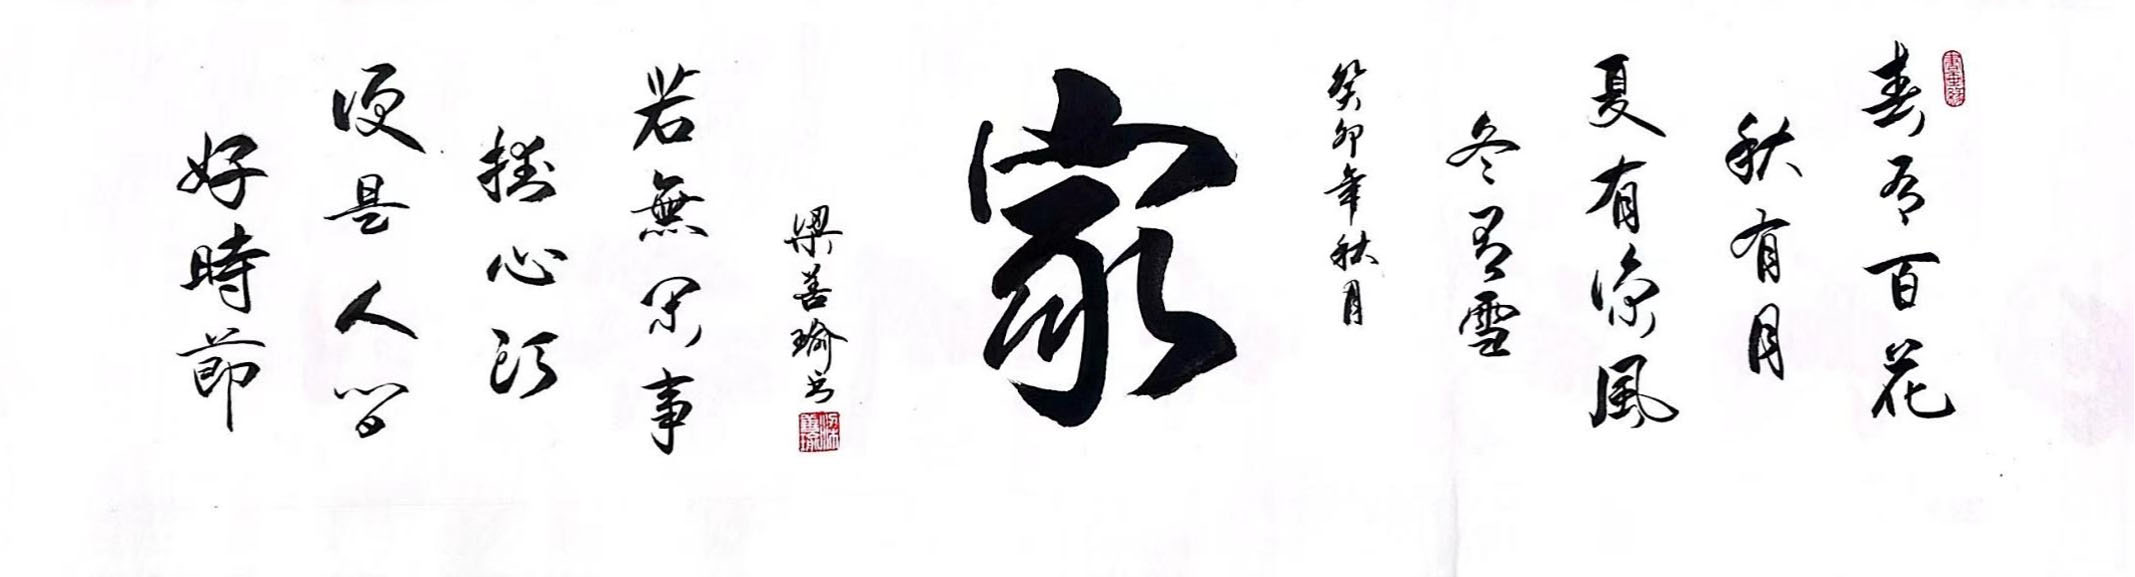 春有百花
秋有月
夏有涼風
冬有雪
癸卯年秋月
家
梁善瑜书
若無閑事
掛心頭
便是人間
好時節